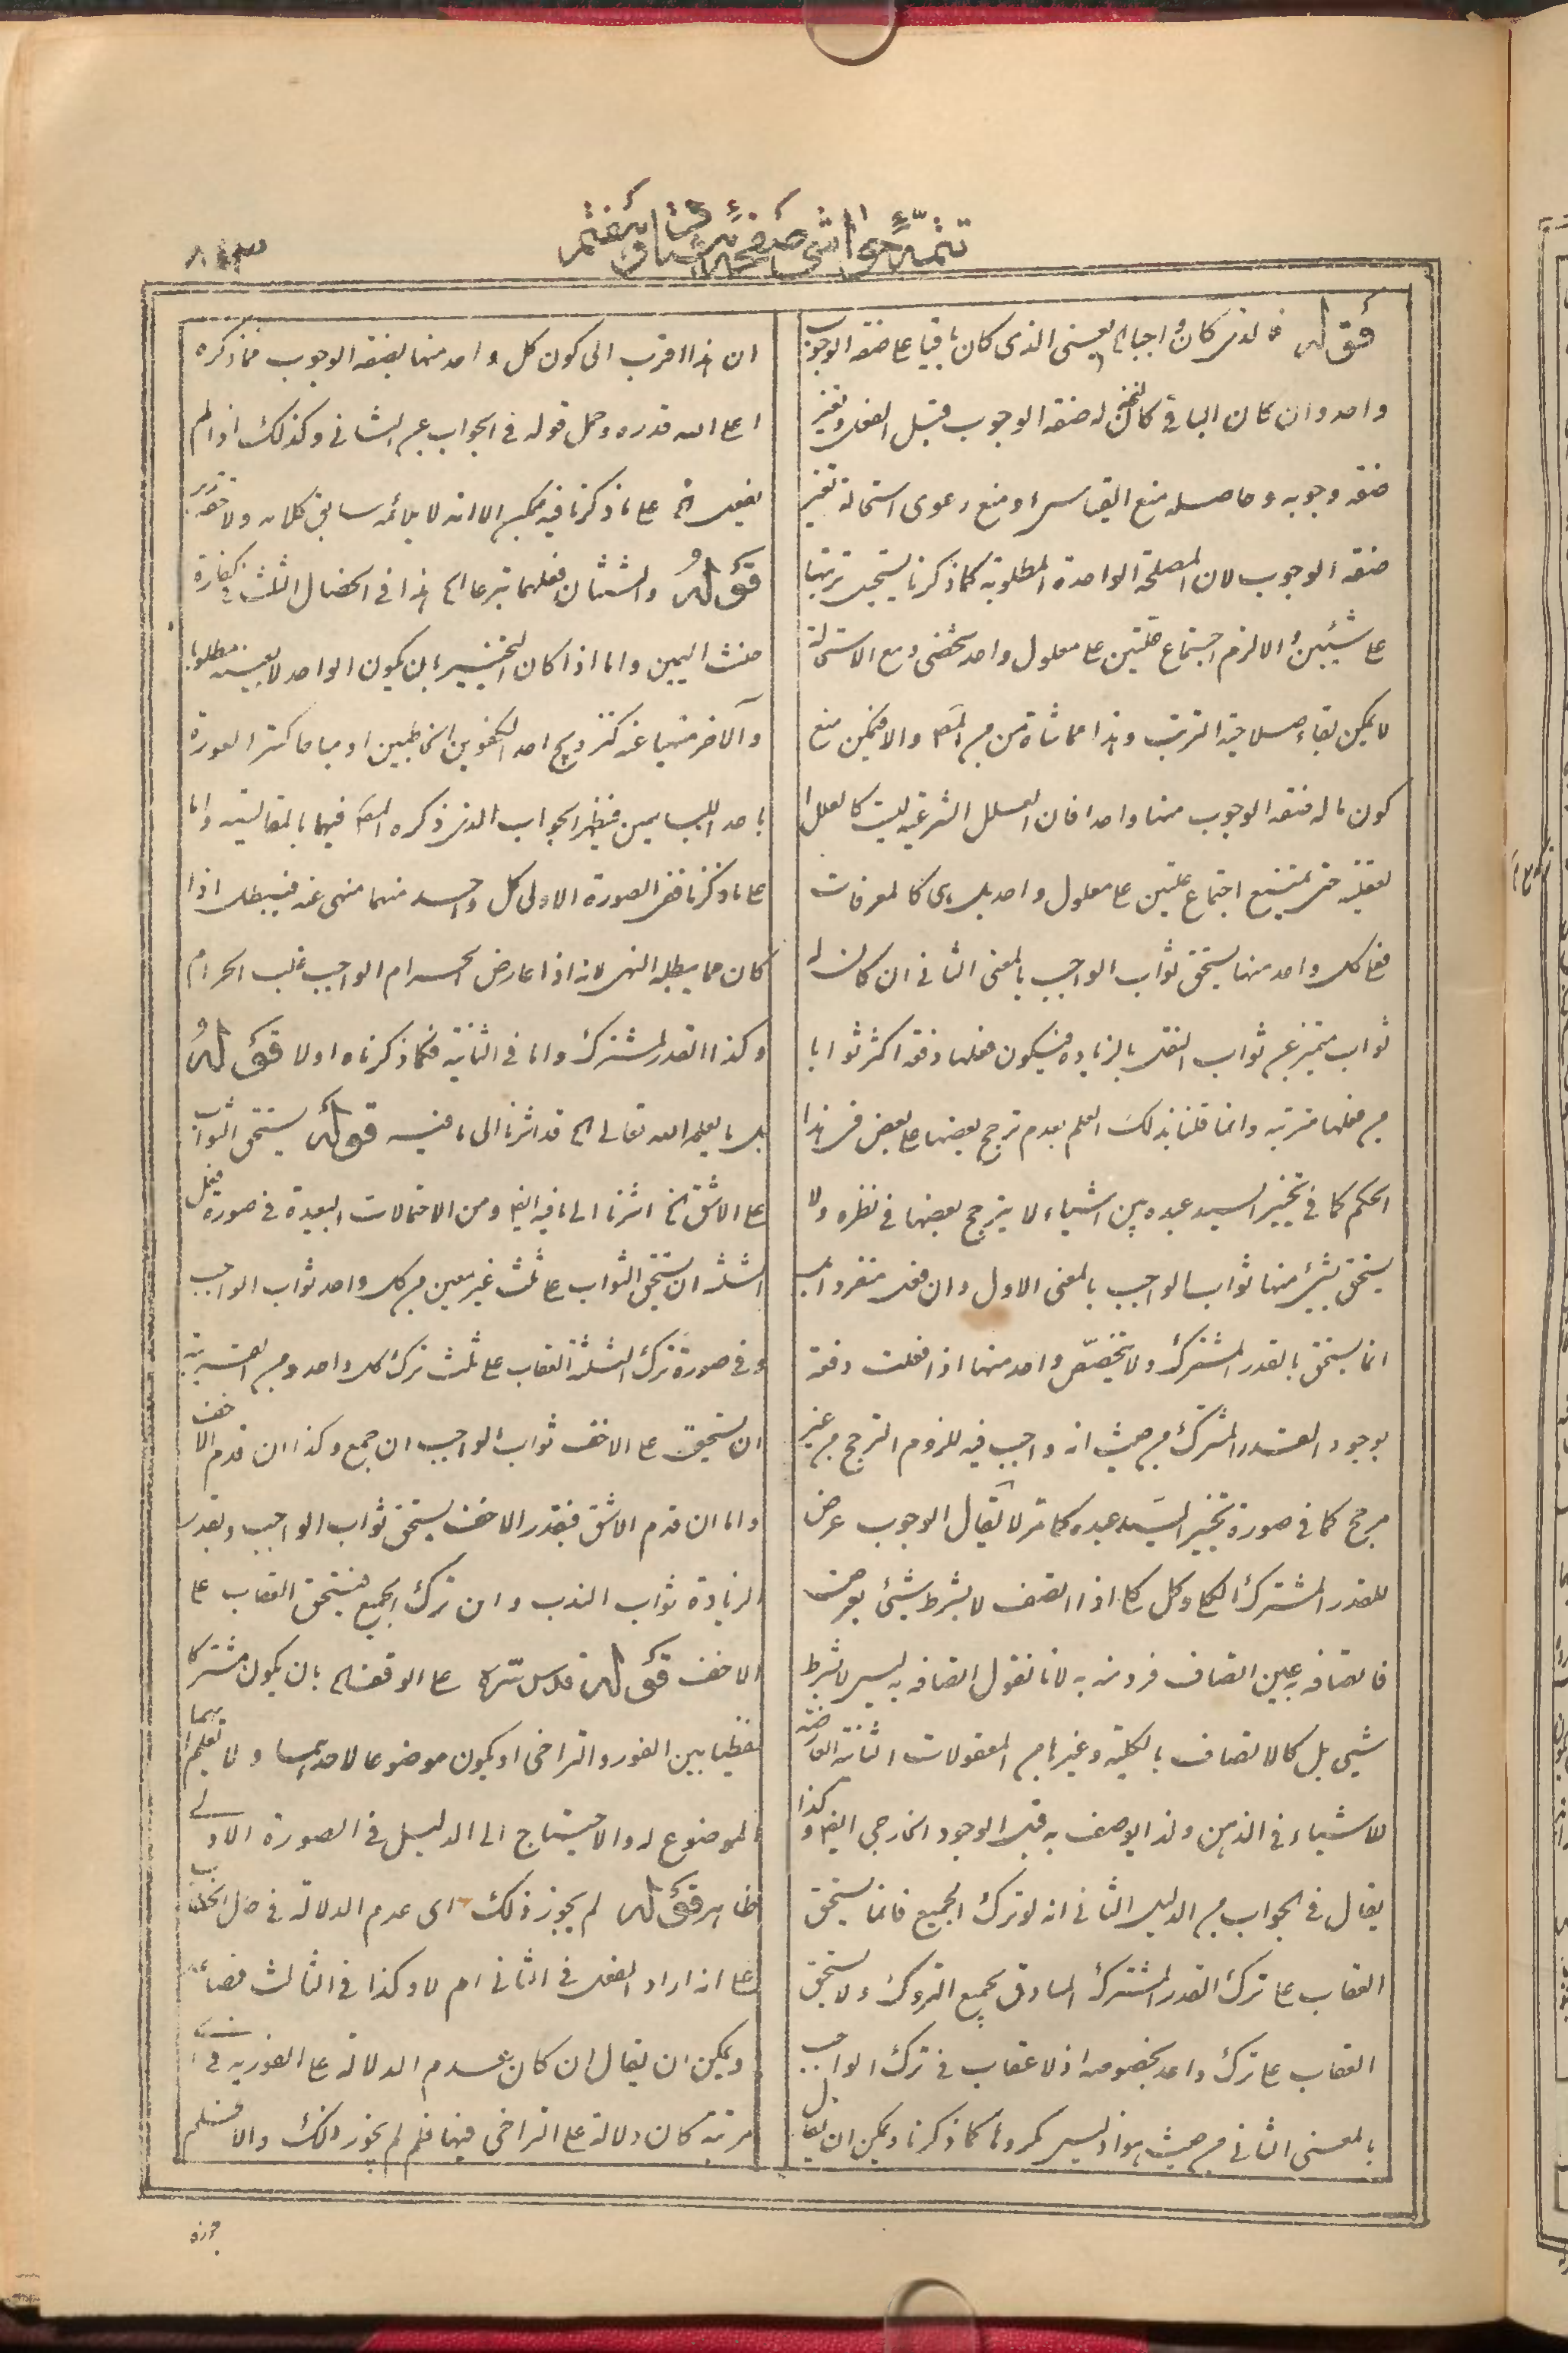 تتمة حواشى صفحة
قوله فالذى كان واجبا الخ يعنى الذى كان باقيا على صفة الوجوب
واحد وان كان الباقى كان له صفة الوجوب قبل الفعل وتغير
صفة وجوبه وحاصله منع القياس او منع دعوى استحالة تغير
صفة الوجوب لان المصلحة الواحدة المطلوبة كما ذكرنا يستحيل ترتبها
على شيئين والا لزم اجتماع علتين على معلول واحد شخصى ومع الاستحالة
لا يمكن بقاء صلاحية الترتب وهذا مماشاة من المص والا فيمكن منع
كون ما له صفة الوجوب منها واحدا فان العلل الشرعية ليست كالعلل ا
لعقلية حتى يمتنع اجتماع علتين على معلول واحد بل هى كالمعرفات
فعلى كل واحد منها يستحق ثواب الواجب بالمعنى الثانى ان كان له
ثواب متميز عن ثواب النفل بالزيادة فيكون فعلها دفعة اكثر ثوابا
من فعلها مترتبة وانما قلنا بذلك العلم بعدم ترجح بعضها على بعض فى هذا
الحكم كما فى تخيير السيد عبده بين اشياء لا يترجح بعضها فى نظره ولا
يستحق بشئ منها ثواب الواجب بالمعنى الاول وان فعل منفردا بل
انما يستحق بالقدر المشترك ولا يتخصص واحد منها اذا فعلت دفعة
بوجود القدر المشترك من حيث انه واجب فيه للزوم الترجح من غير
مرجح كما فى صورة تخيير السيد عبده كما مر لا يقال الوجوب عرض
للقدر المشترك الكلى وكل كلى اذا اتصف لا بشرط شيئ بعرض
فاتصافه بعين اتصاف فرد منه به لانا نقول اتصافه به ليس لا بشرط
شيئ بل كالاتصاف بالكلية وغيرها من المعقولات الثانية العارضة
للاشياء فى الذهن ولذا يوصف به قبل الوجود الخارجى ايضا وكذا
يقال فى الجواب من الدليل الثانى انه لو ترك الجميع فانما يستحق
العقاب على ترك القدر المشترك الصادق بجميع التروك ولا يستحق
العقاب على ترك واحد بخصوصه اذ لا عقاب فى ترك الواجب
بالمعنى الثانى من حيث هو اذ ليس كمروها كما ذكرنا ويمكن ان يقال
ان هذا اقرب الى كون كل واحد منها بصفة الوجوب فما ذكره
اعلى الله قدره وحمل قوله فى الجواب عن الثانى وكذلك اذا لم
يفعل الخ على ما ذكرنا فيه ممكن الا انه لا يلائمه سابق كلامه ولا
قوله والستتان فعلهما تبرعا الخ هذا فى الخصال الثلث فى كفارة
حنث اليمين واما اذا كان التخيير بان يكون الواحد لا بعينه مطلوبا
والآخر منهيا عنه كتزويج احد الكفوين الخاطبين او مباحا كستر العورة
باحد اللباسين فيظهر الجواب الذى ذكره المص فيهما بالمقايسة واما
على ما ذكرنا ففى الصورة الاولى كل واحد منهما منهى عنه فيبطل اذا
كان مما يبطله النهى لانه اذا عارض الحرام الواجب غلب الحرام
وكذا القدر المشترك واما فى الثانية فكما ذكرناه اولا قوله
بل ما يعلمه الله تعالى الخ قد اشرنا الى ما فيه قوله يستحق الثواب
على الاشق الخ اشرنا الى ما فيه ايضا ومن الاحتمالات البعيدة فى صورة فعل
الثلثة ان يستحق الثواب على ثلث غير معين من كل واحد ثواب الواجب
وفى صورة ترك الثلثة العقاب على ثلث ترك كل واحد ومن القريبة
ان يستحق على الاخف ثواب الواجب ان جمع وكذا ان قدم الاخف
واما ان قدم الاشق فبقدر الاخف يستحق ثواب الواجب وبقدر
الزيادة ثواب الندب وان ترك الجميع فيستحق العقاب على
الاخف قوله قدس سره على الوقف الخ بان يكون مشتركا
لفظيا بين الفور والتراخى او يكون موضوعا لاحدهما ولا نعلم ايهما
الموضوع له والاحتياج الى الدليل فى الصورة الاولى
ظاهر قوله لم يجوز ذلك اى عدم الدلالة فى حال الخطاب
على انه اراد الفعل فى الثانى ام لا وكذا فى الثالث فصاعدا
ويمكن ان يقال ان كان عدم الدلالة على الفورية فى
مرتبة كان دلالة على التراخى فيها فلم لم يجوز ذلك والا فنسلم